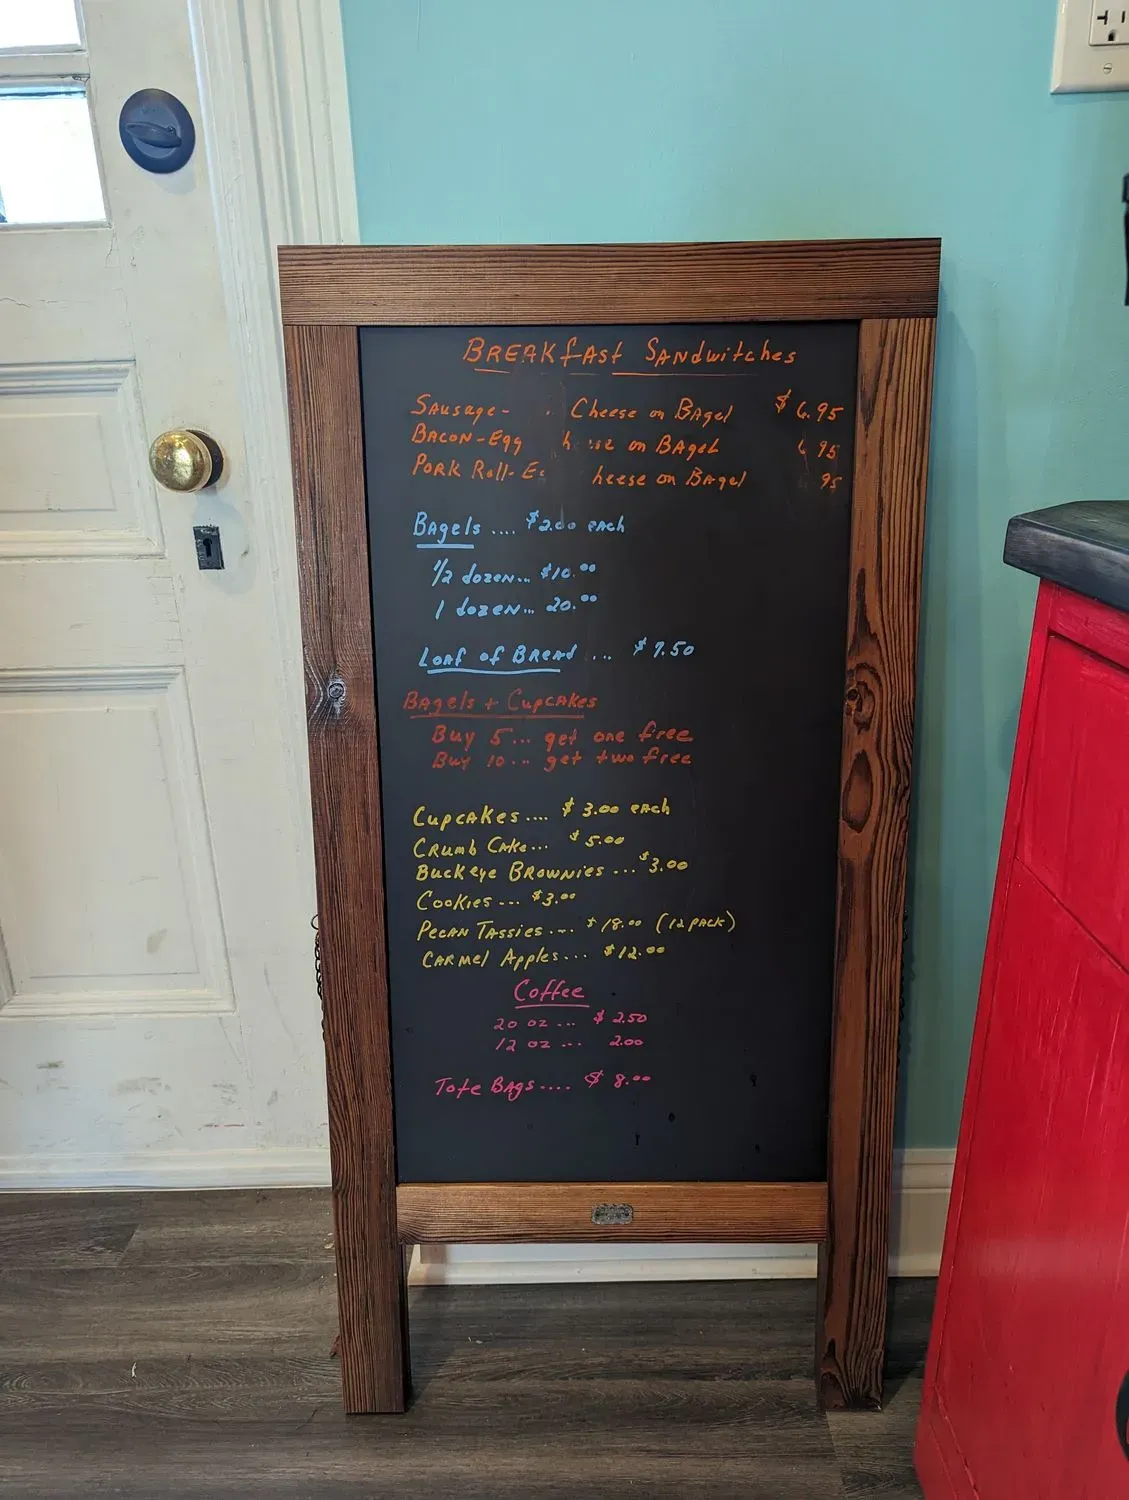 BREAKfAst SANdwitches
SAusage- Cheese on BAgel $ 6.95
BACON-Egg on BAgel 6 95
PORK Roll- on BAgel 95
Bagels .... $2.00 each
1/2 dozen... $10.00
1 dozen... 20.00
Loaf of BReAd ... $7.50
Bagels + CupcAKes
Buy 5... get one free
Buy 10... get two free
CupcAKes .... $ 3.00 each
CRumb CAKe... $ 5.00
BucKeye BROWNies ... $3.00
CooKies ... $3.00
PecAN TAssies .... $ 18.00 (12 pAcK)
CARmel Apples... $12.00
Coffee
20 oz ... $ 2.50
12 oz ... 2.00
Tote BAgs.... $ 8.00